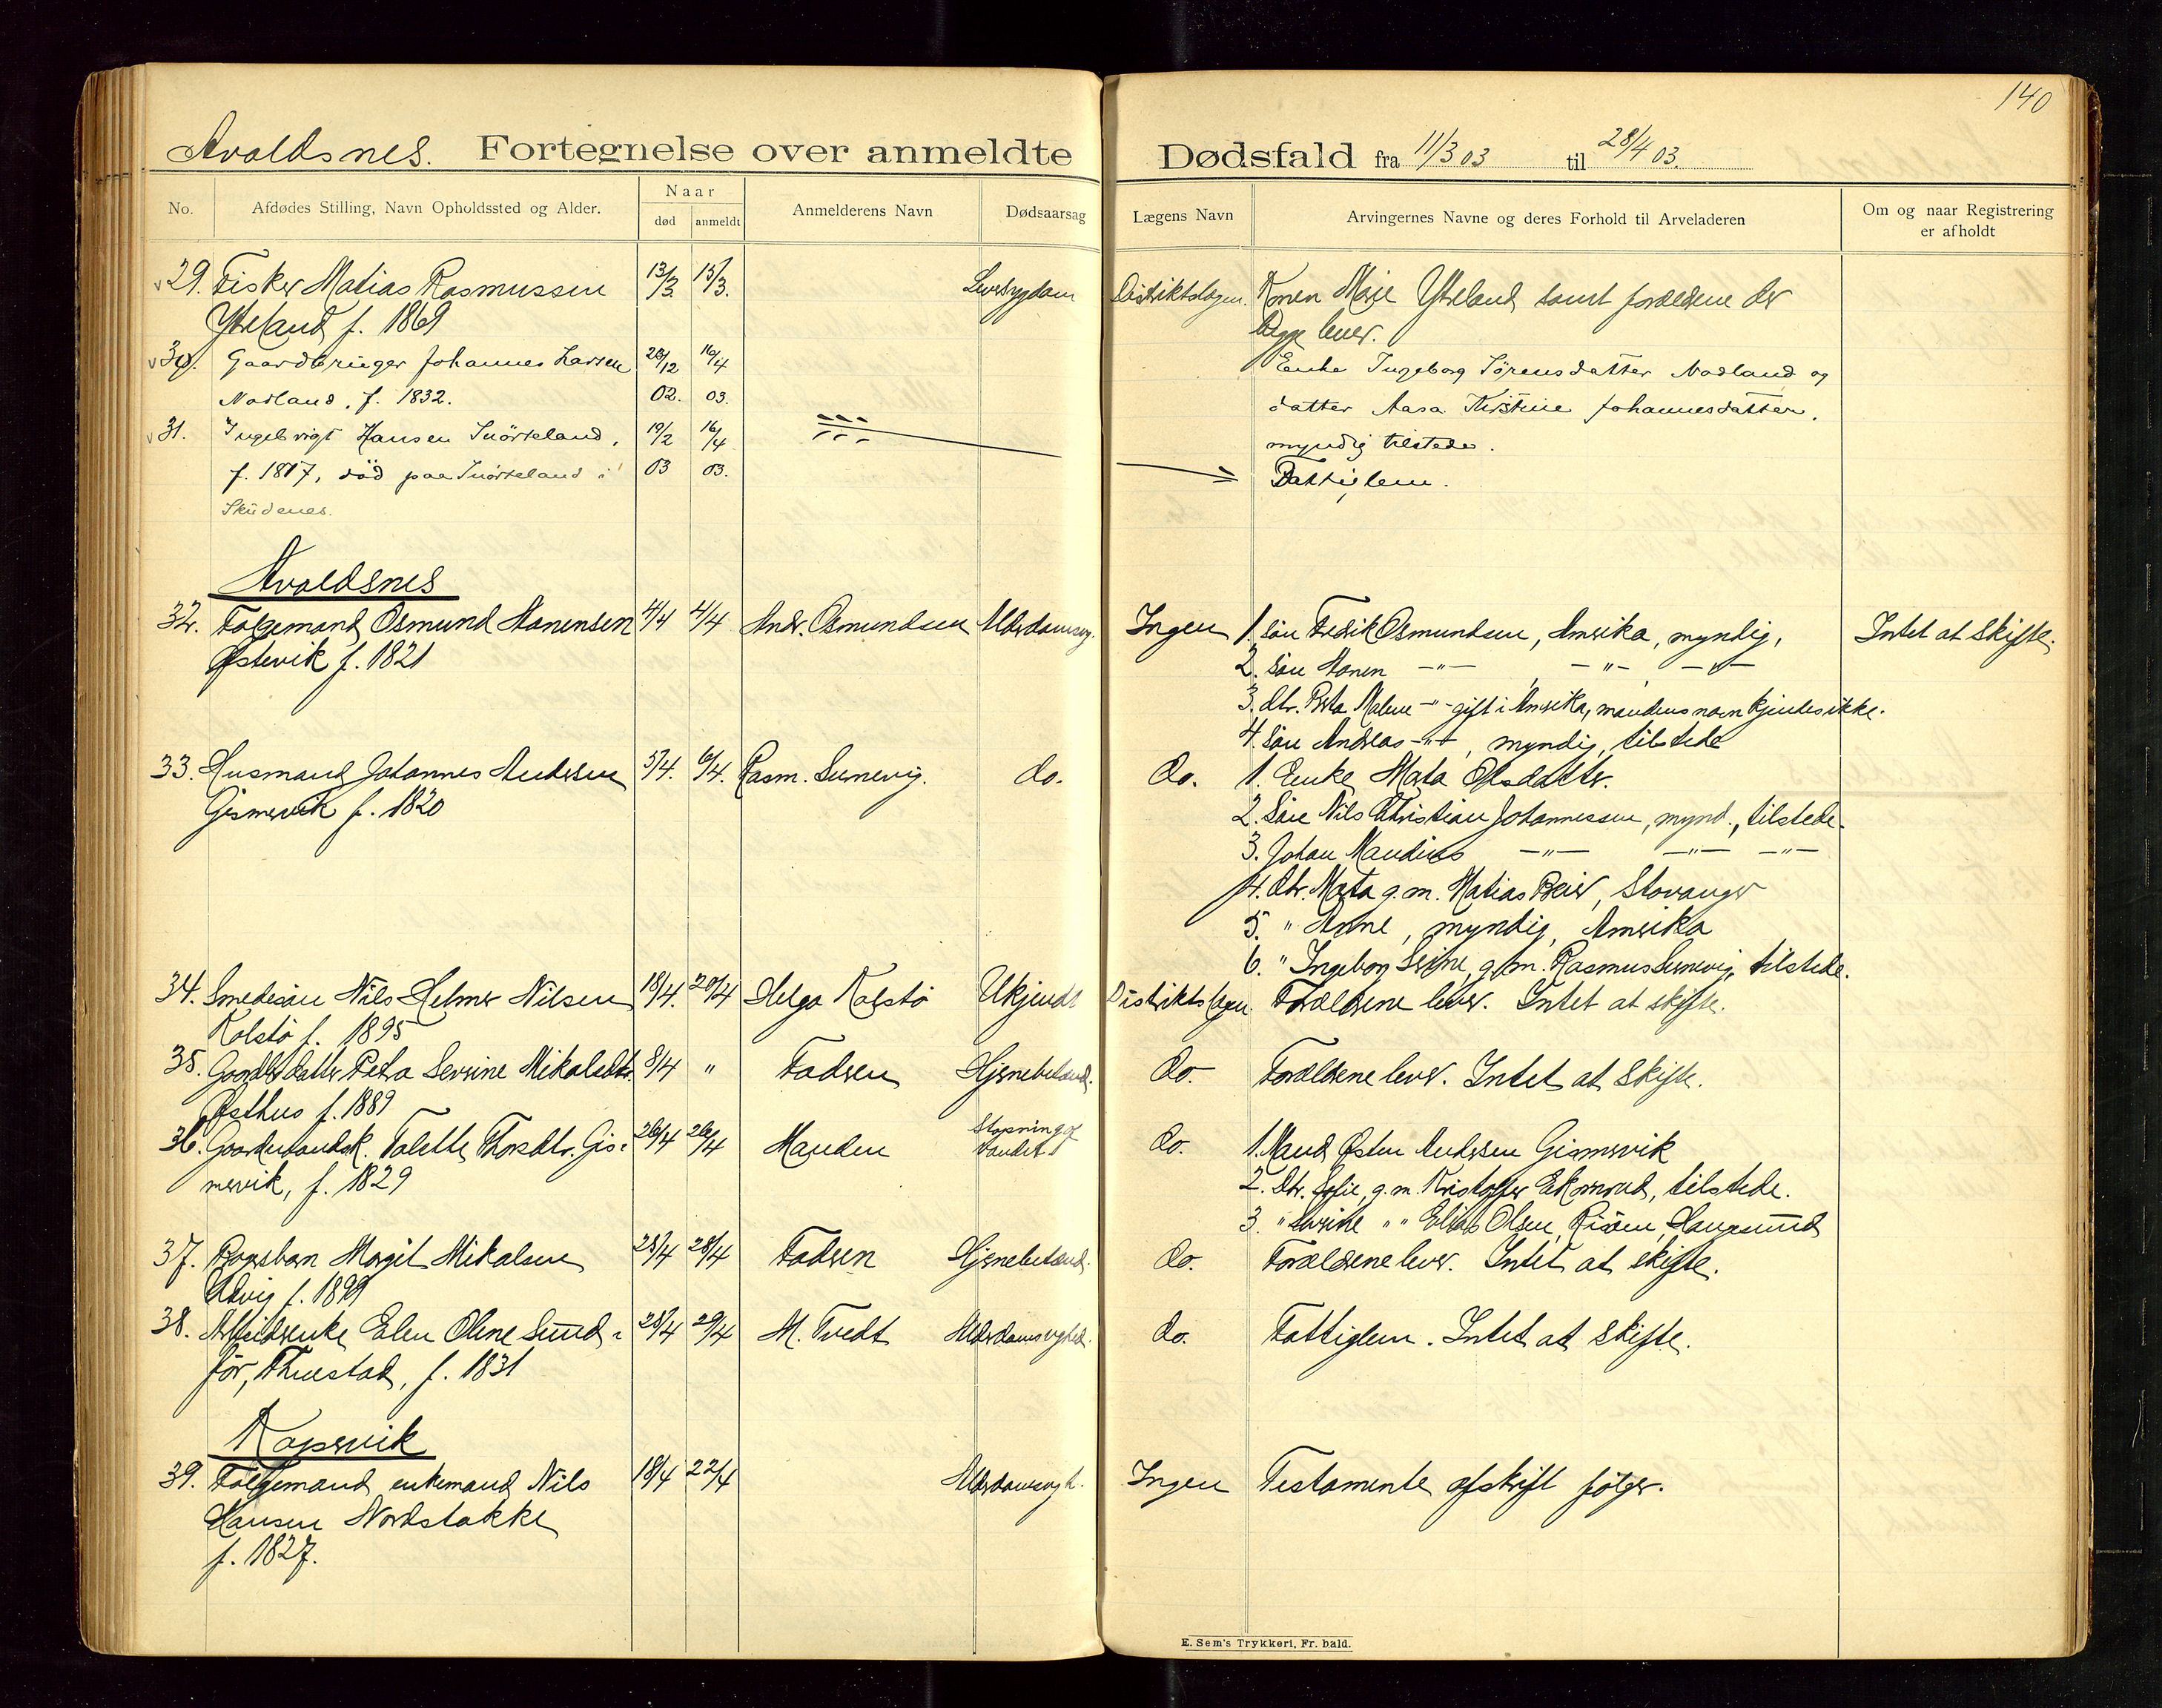 140
Avaldsnes. Fortegnelse over anmeldte Dødsfald fra 11/3 03 til 28/4 03.
No. Afdødes Stilling, Navn Opholdssted og Alder. Naar død anmeldt Anmelderens Navn Dødsaarsag Lægens Navn Arvingernes Navne og deres Forhold til Arveladeren Om og naar Registrering er afholdt
29. Fisker Matias Rasmussen 13/3 15/3. Distriktslægen. Konen Marie Ytreland samt forældrene der
Ytreland f. 1869 begge lever.
30. Gaardbruger Johannes Larsen 28/12 16/4 Enke Ingeborg Sørensdatter Nodland og
Nodland, f. 1832. 02. 03. datter Aasa Kirstine Johannesdatter,
31. Ingebrigt Hansen Snörteland, 19/2 16/4 myndig tilstede.
f. 1817, död paa Snörteland i 03 03. Fattiglem.
Skudenes.
Avaldsnes
32. Følgemand Osmund Monensen 4/4 4/4 Andr. Osmundsen Alderdomssvag. Ingen 1. Søn Fredrik Osmundsen, Amerika, myndig, Intet at skifte.
Østevik f. 1821 2. Søn Monen —"— —"— —"—
3. Dtr. Berta Malene —"— gift i Amerika, mandens navn kjendes ikke.
4. Søn Andreas —"—, myndig, tilstede
33. Husmand Johannes Andersen 5/4. 6/4. Rasm. Sernevig. do. do. 1. Enke Marta Olsdatter.
Gismervik f. 1820 2. Søn Nils Christian Johannessen, mynd., tilstede.
3. Johan Mandius —"— —"— —"—
4. Dtr. Marta g. m. Matias Beier, Stavanger
5. " Anne, myndig, Amerika
6. " Ingeborg Serine, g. m. Rasmus Sernevig, tilstede.
34. Smedesøn Nils Helmer Nilsen 18/4. 20/4 Helga Kolstø Ukjendt Distriktslægen. Forældrene lever. Intet at skifte.
Kolstø f. 1895
35. Gaardbr.datter Petra Severine Mikalsdtr. 8/4 " Faderen Hjernebetænd. do. Forældrene lever. Intet at skifte.
Østhus f. 1889
36. Gaardmandsk. Talette Thorsdtr. Gis- 26/4 26/4 Manden Stopning af do. 1. Mand Østen Andersen Gismervik
mervik, f. 1829 vandet 2. Dtr. Sofie, g. m. Kristoffer Ekornrud, tilstede.
3. " Serine " " Elias Olsen, Risøen, Haugesund
37. Pogesbarn Margit Mikalsen 23/4 28/4 Faderen Hjernebetænd. do. Forældrene lever. Intet at skifte.
Udvig f. 1899
38. Arbeiderenke Elen Oline Sund- 28/4 29/4 M. Tvedt Alderdomssvaghed. do. Fattiglem. Intet at skifte.
för, Thuestad, f. 1831
Kopervik
39. Følgemand enkemand Nils 18/4 22/4 Alderdomssvagh. Ingen Testamente afskrift følger.
Hansen Nordstokke
f. 1827.
E. Sem's Trykkeri, Fr. hald.